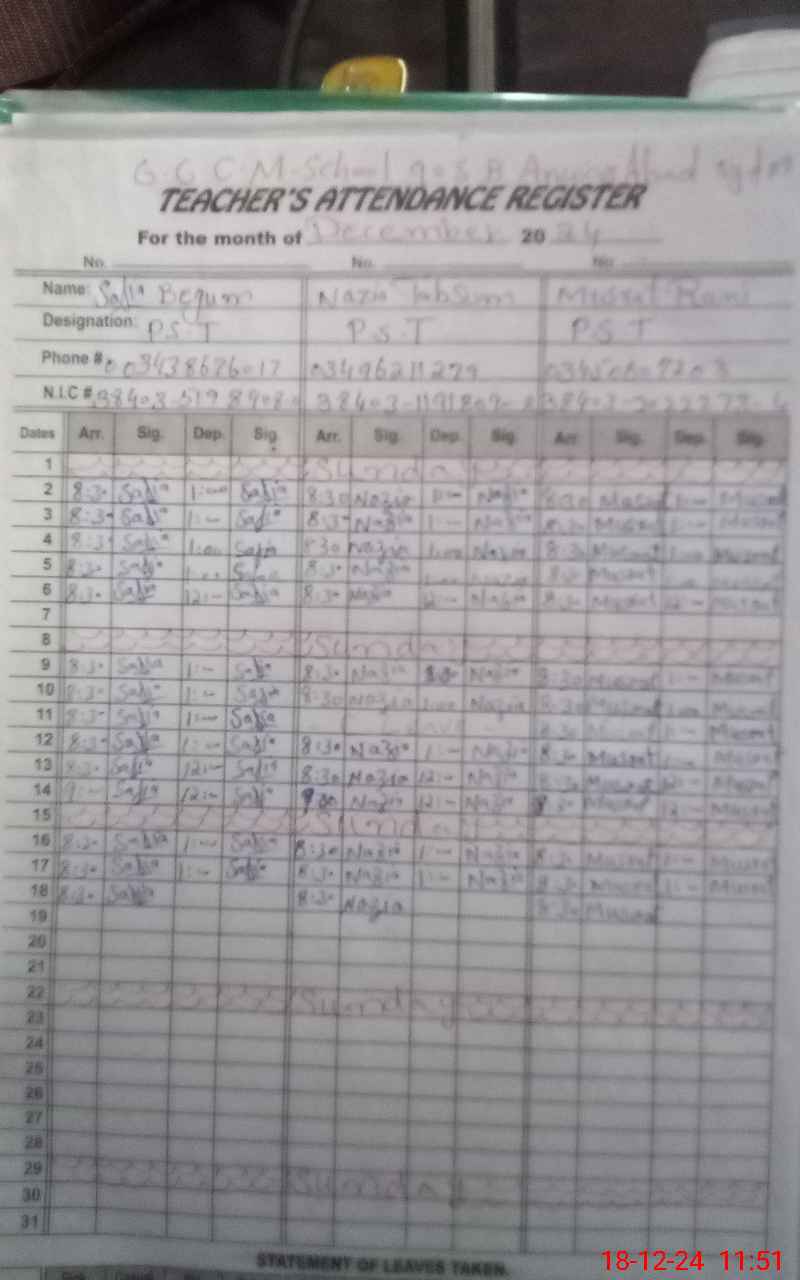 G.G.C.M.School 90 S.B
TEACHER'S ATTENDANCE REGISTER
For the month of December 2024
No. No. No.
Name: Safia Begum Nazia Tabsum Musrat Rani
Designation: P.S.T P.S.T P.S.T
Phone # 03438676017 03496211279
N.I.C #
Dates Arr. Sig. Dep. Sig. Arr. Sig. Dep. Sig. Arr. Sig. Dep. Sig.
1 Sunday
2 8:30 Safia 1:00 Safia 8:30 Nazia 1:00 Nazia 8:30 Musrat 1:00 Musrat
3 8:30 Safia 1:00 Safia 8:30 Nazia 1:00 Nazia 8:30 Musrat 1:00 Musrat
4 8:30 Safia 1:00 Safia 8:30 Nazia 1:00 Nazia 8:30 Musrat 1:00 Musrat
5 8:30 Safia 1:00 Safia 8:30 Nazia Nazia 8:30 Musrat
6 8:30 Safia 12:00 Safia 8:30 Nazia 12:00 Nazia 8:30 Musrat 12:00 Musrat
7
8 Sunday
9 8:30 Safia 1:00 Safia 8:30 Nazia Nazia 8:30 Musrat 1:00 Musrat
10 8:30 Safia 1:00 Safia 8:30 Nazia 1:00 Nazia 8:30 Musrat 1:00 Musrat
11 8:30 Safia 1:00 Safia 8:30 Musrat 1:00 Musrat
12 8:30 Safia 1:00 Safia 8:30 Nazia 1:00 Nazia 8:30 Musrat 1:00 Musrat
13 8:30 Safia 12:00 Safia 8:30 Nazia 12:00 Nazia 8:30 Musrat 12:00 Musrat
14 9:00 Safia 12:00 Safia Nazia 12:00 Nazia Musrat 12:00 Musrat
15 Sunday
16 8:30 Safia 1:00 Safia 8:30 Nazia 1:00 Nazia 8:30 Musrat 1:00 Musrat
17 8:30 Safia 1:00 Safia 8:30 Nazia 1:00 Nazia 8:30 Musrat 1:00 Musrat
18 8:30 Safia 8:30 Nazia 8:30 Musrat
19
20
21
22 Sunday
23
24
25
26
27
28
29 Sunday
30
31
STATEMENT OF LEAVES TAKEN.
18-12-24 11:51